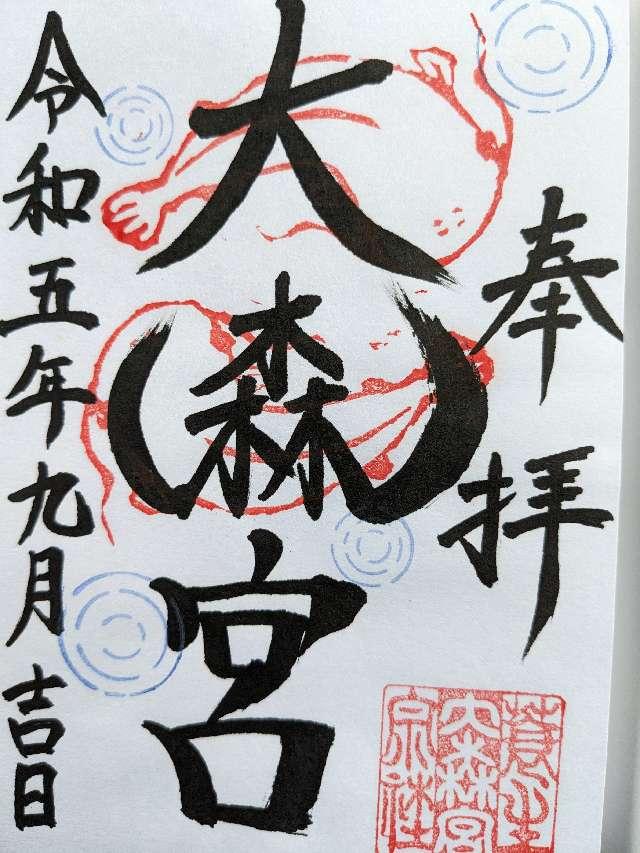 奉拝
大森宮
令和五年九月吉日